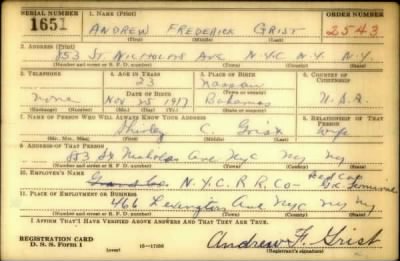 SERIAL NUMBER 1. NAME (Print) ORDER NUMBER
1651 ANDREW FREDERICK GRIST 2543
(First) (Middle) (Last)
2. ADDRESS (Print)
853 ST NICHOLAS AVE N.Y.C N.Y. N.Y.
(Number and street or R. F. D. number) (Town) (County) (State)
3. TELEPHONE 4. AGE IN YEARS 5. PLACE OF BIRTH 6. COUNTRY OF CITIZENSHIP
23 Nassau
DATE OF BIRTH (Town or county)
none Nov 25 1917 Bahamas U.S.A.
(Exchange) (Number) (Mo.) (Day) (Yr.) (State or country)
7. NAME OF PERSON WHO WILL ALWAYS KNOW YOUR ADDRESS 8. RELATIONSHIP OF THAT PERSON
Shirley C. Grist Wife
(Mr., Mrs., Miss) (First) (Middle) (Last)
9. ADDRESS OF THAT PERSON
853 St Nicholas Ave Nyc Ny Ny
(Number and street or R. F. D. number) (Town) (County) (State)
10. EMPLOYER'S NAME Red Cap
N.Y.C. R R. Co
11. PLACE OF EMPLOYMENT OR BUSINESS
466 Lexington Ave Nyc Ny Ny
(Number and street or R. F. D. number) (Town) (County) (State)
I AFFIRM THAT I HAVE VERIFIED ABOVE ANSWERS AND THAT THEY ARE TRUE.
REGISTRATION CARD
D. S. S. FORM 1 (over) 16—17105 Andrew F. Grist
(Registrant's signature)